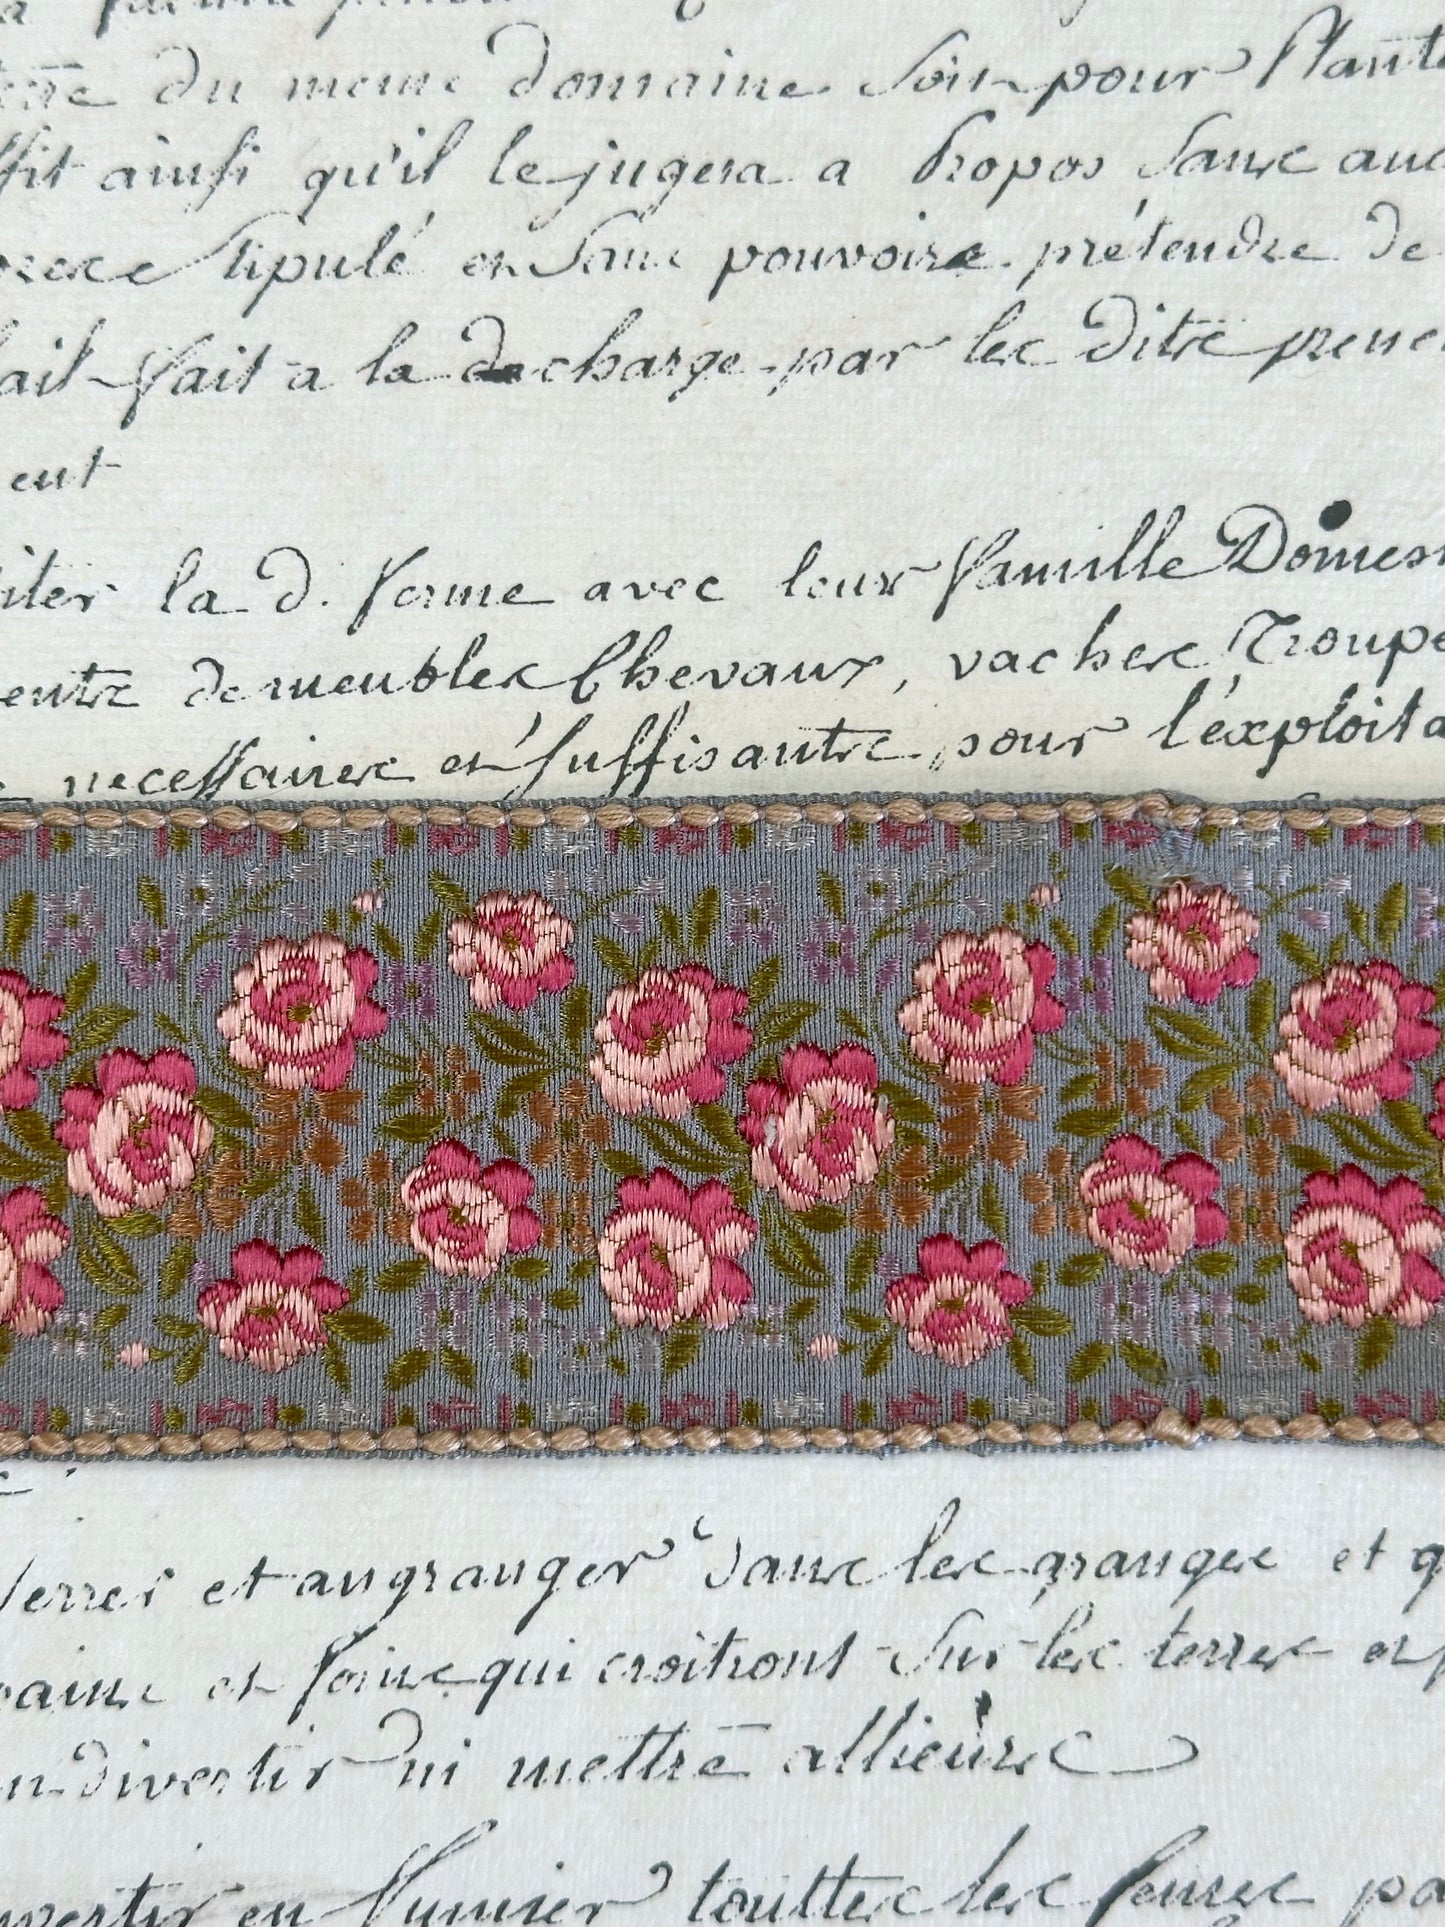 du meme domaine Soit pour Plante
ffit ainsi qu'il le jugera a Propos Sans auc
Stipulé et Sans pouvoire prétendre de
fait a la decharge par les dits prene
ent
iter la d. ferme avec leur famille Domest
ents de meubles Chevaux, vaches, Troupe
necessaires et Suffisants pour l'exploita
terres et angranger dans les granges et q
et foins qui croitront Sur les terres et p
divertir ni mettre allieurs
vertir en fumier touttes les